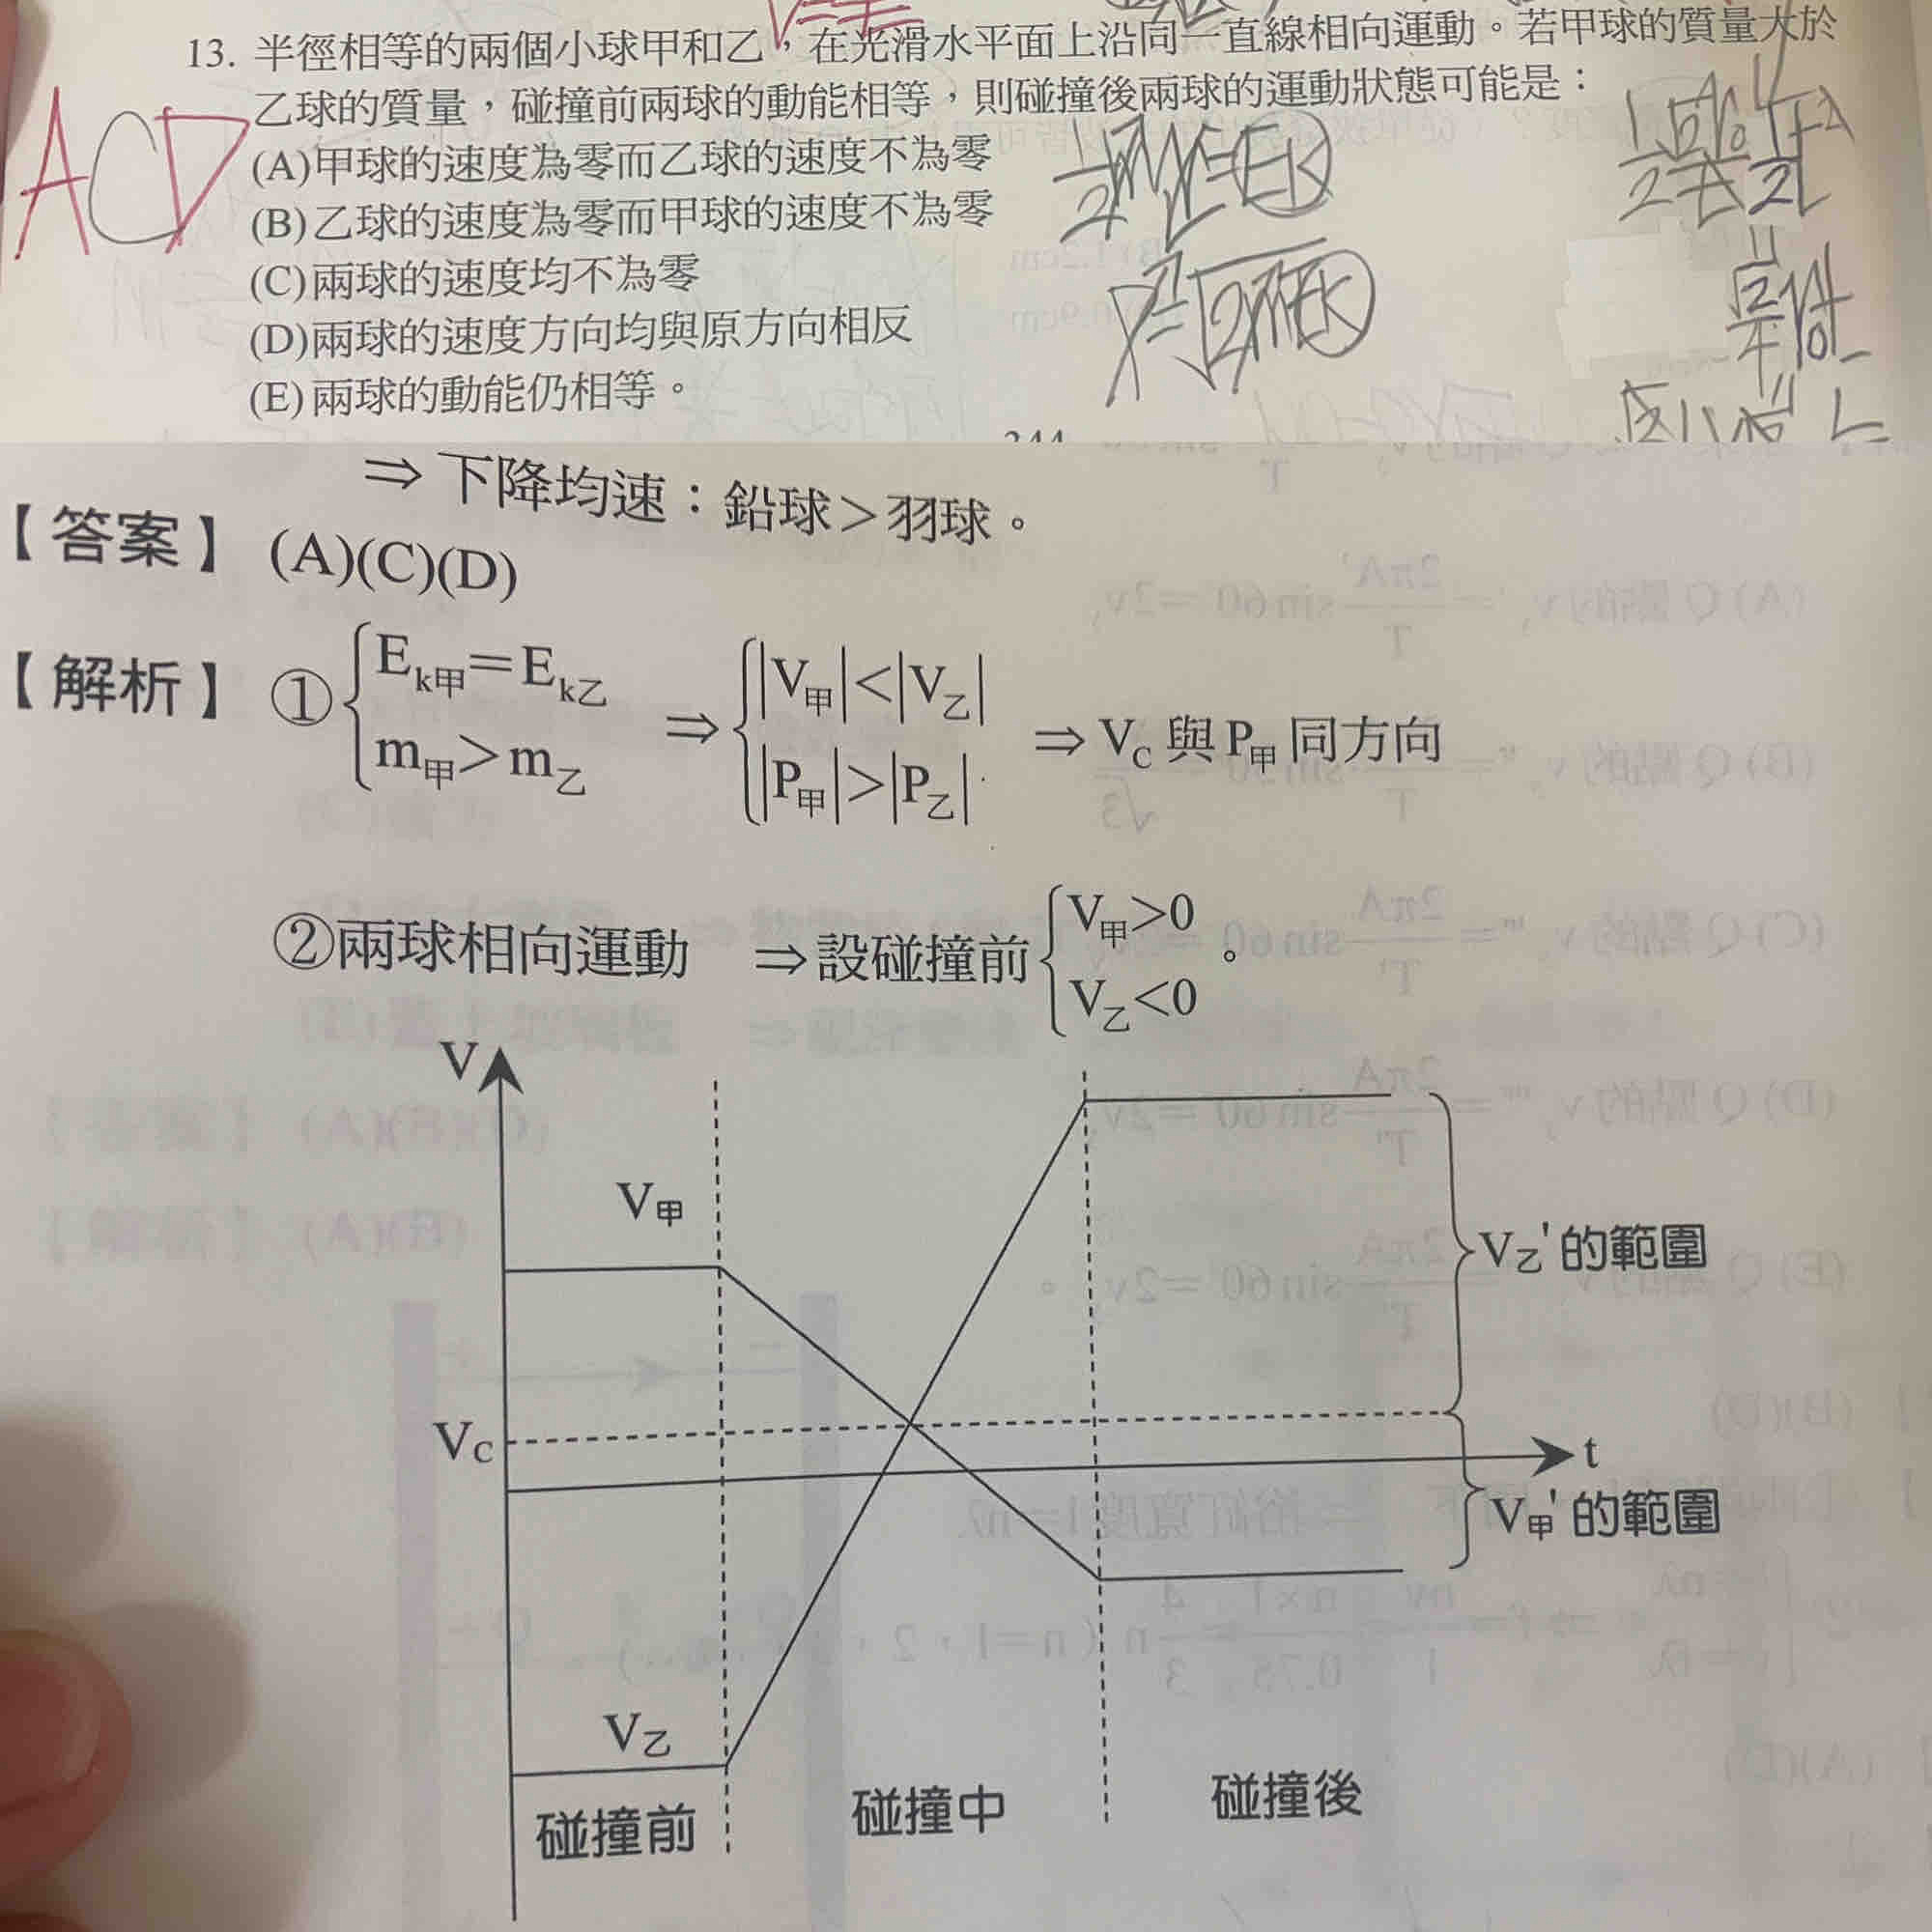 13. 半徑相等的兩個小球甲和乙，在光滑水平面上沿同一直線相向運動。若甲球的質量大於
乙球的質量，碰撞前兩球的動能相等，則碰撞後兩球的運動狀態可能是：
ACD
(A)甲球的速度為零而乙球的速度不為零
(B)乙球的速度為零而甲球的速度不為零
(C)兩球的速度均不為零
(D)兩球的速度方向均與原方向相反
(E)兩球的動能仍相等。
⇒下降均速：鉛球>羽球。
【答案】 (A)(C)(D)
【解析】 ① { E_k甲=E_k乙
m_甲>m_乙
⇒ { |V_甲|<|V_乙|
|P_甲|>|P_乙|
⇒ V_C 與 P_甲 同方向
②兩球相向運動 ⇒設碰撞前 { V_甲>0
V_乙<0 。
V
V_甲
V_乙'的範圍
V_C
t
V_甲'的範圍
V_乙
碰撞前 碰撞中 碰撞後